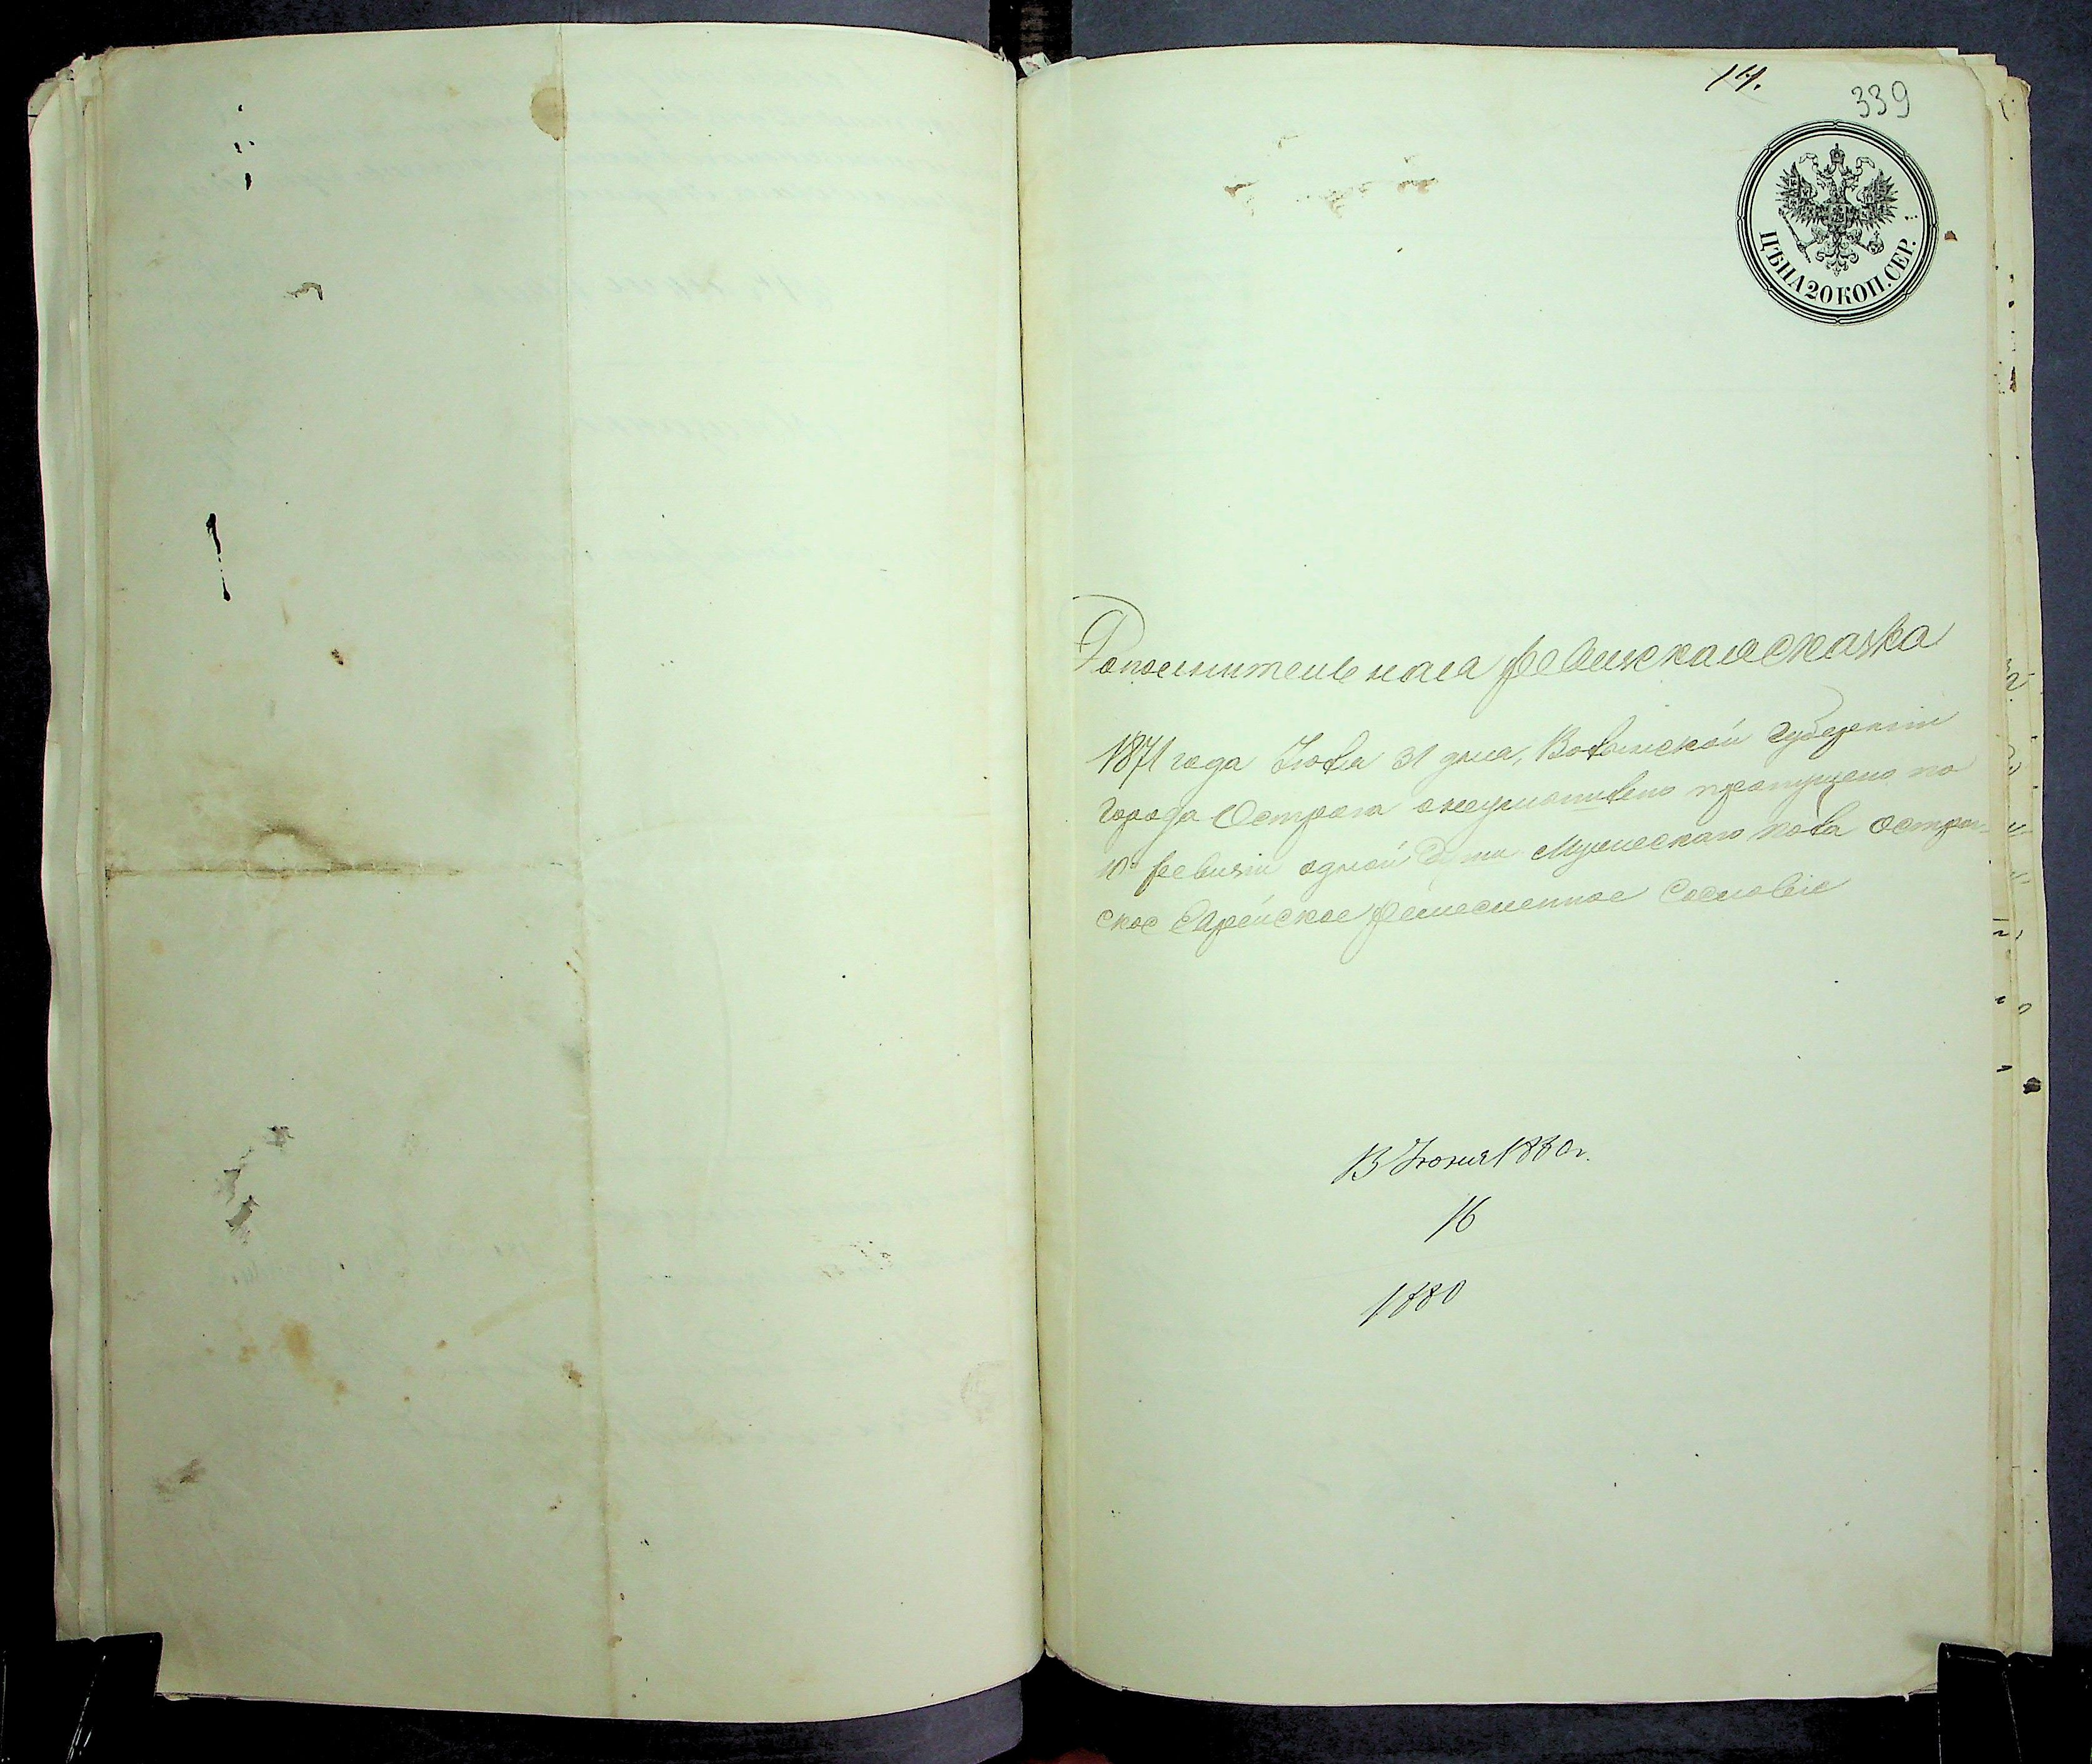 14.
339
ЦѢНА 20 КОП. СЕР.
Дополнительная ревизская сказка
1871 года Іюля 31 дня, Волынской Губерніи
Города Острога о неумышленно пропущено по
10й ревизіи одной Души Мужескаго пола острог=
ское Еврейское ремесленное Сословіе
13 Іюня 1880 г.
16
1880